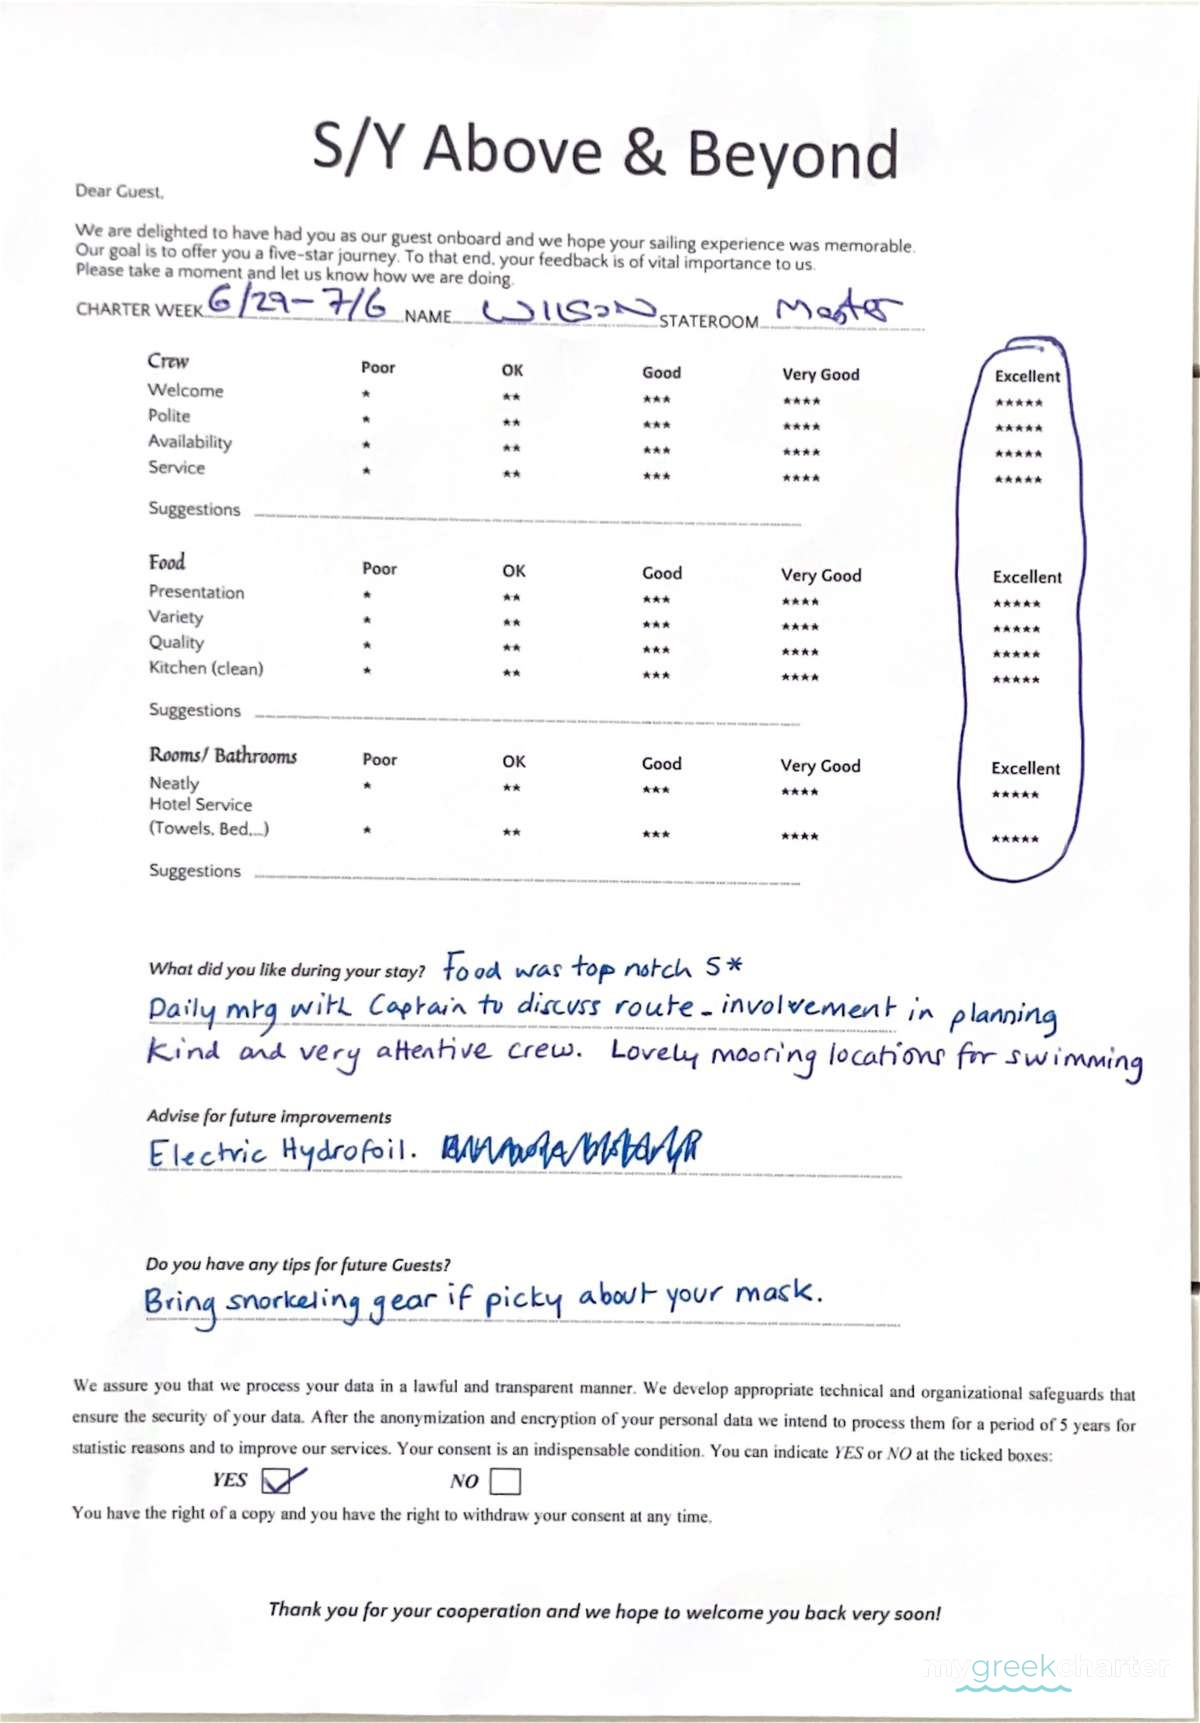 S/Y Above & Beyond
Dear Guest,
We are delighted to have had you as our guest onboard and we hope your sailing experience was memorable.
Our goal is to offer you a five-star journey. To that end, your feedback is of vital importance to us.
Please take a moment and let us know how we are doing.
CHARTER WEEK 6/29-7/6 NAME WILSON STATEROOM Master
Crew Poor OK Good Very Good Excellent
Welcome * ** *** **** *****
Polite * ** *** **** *****
Availability * ** *** **** *****
Service * ** *** **** *****
Suggestions
Food Poor OK Good Very Good Excellent
Presentation * ** *** **** *****
Variety * ** *** **** *****
Quality * ** *** **** *****
Kitchen (clean) * ** *** **** *****
Suggestions
Rooms/ Bathrooms Poor OK Good Very Good Excellent
Neatly * ** *** **** *****
Hotel Service
(Towels, Bed,...) * ** *** **** *****
Suggestions
What did you like during your stay? Food was top notch 5*
Daily mtg with Captain to discuss route - involvement in planning
Kind and very attentive crew. Lovely mooring locations for swimming
Advise for future improvements
Electric Hydrofoil.
Do you have any tips for future Guests?
Bring snorkeling gear if picky about your mask.
We assure you that we process your data in a lawful and transparent manner. We develop appropriate technical and organizational safeguards that
ensure the security of your data. After the anonymization and encryption of your personal data we intend to process them for a period of 5 years for
statistic reasons and to improve our services. Your consent is an indispensable condition. You can indicate YES or NO at the ticked boxes:
YES NO
You have the right of a copy and you have the right to withdraw your consent at any time.
Thank you for your cooperation and we hope to welcome you back very soon!
mygreekcharter